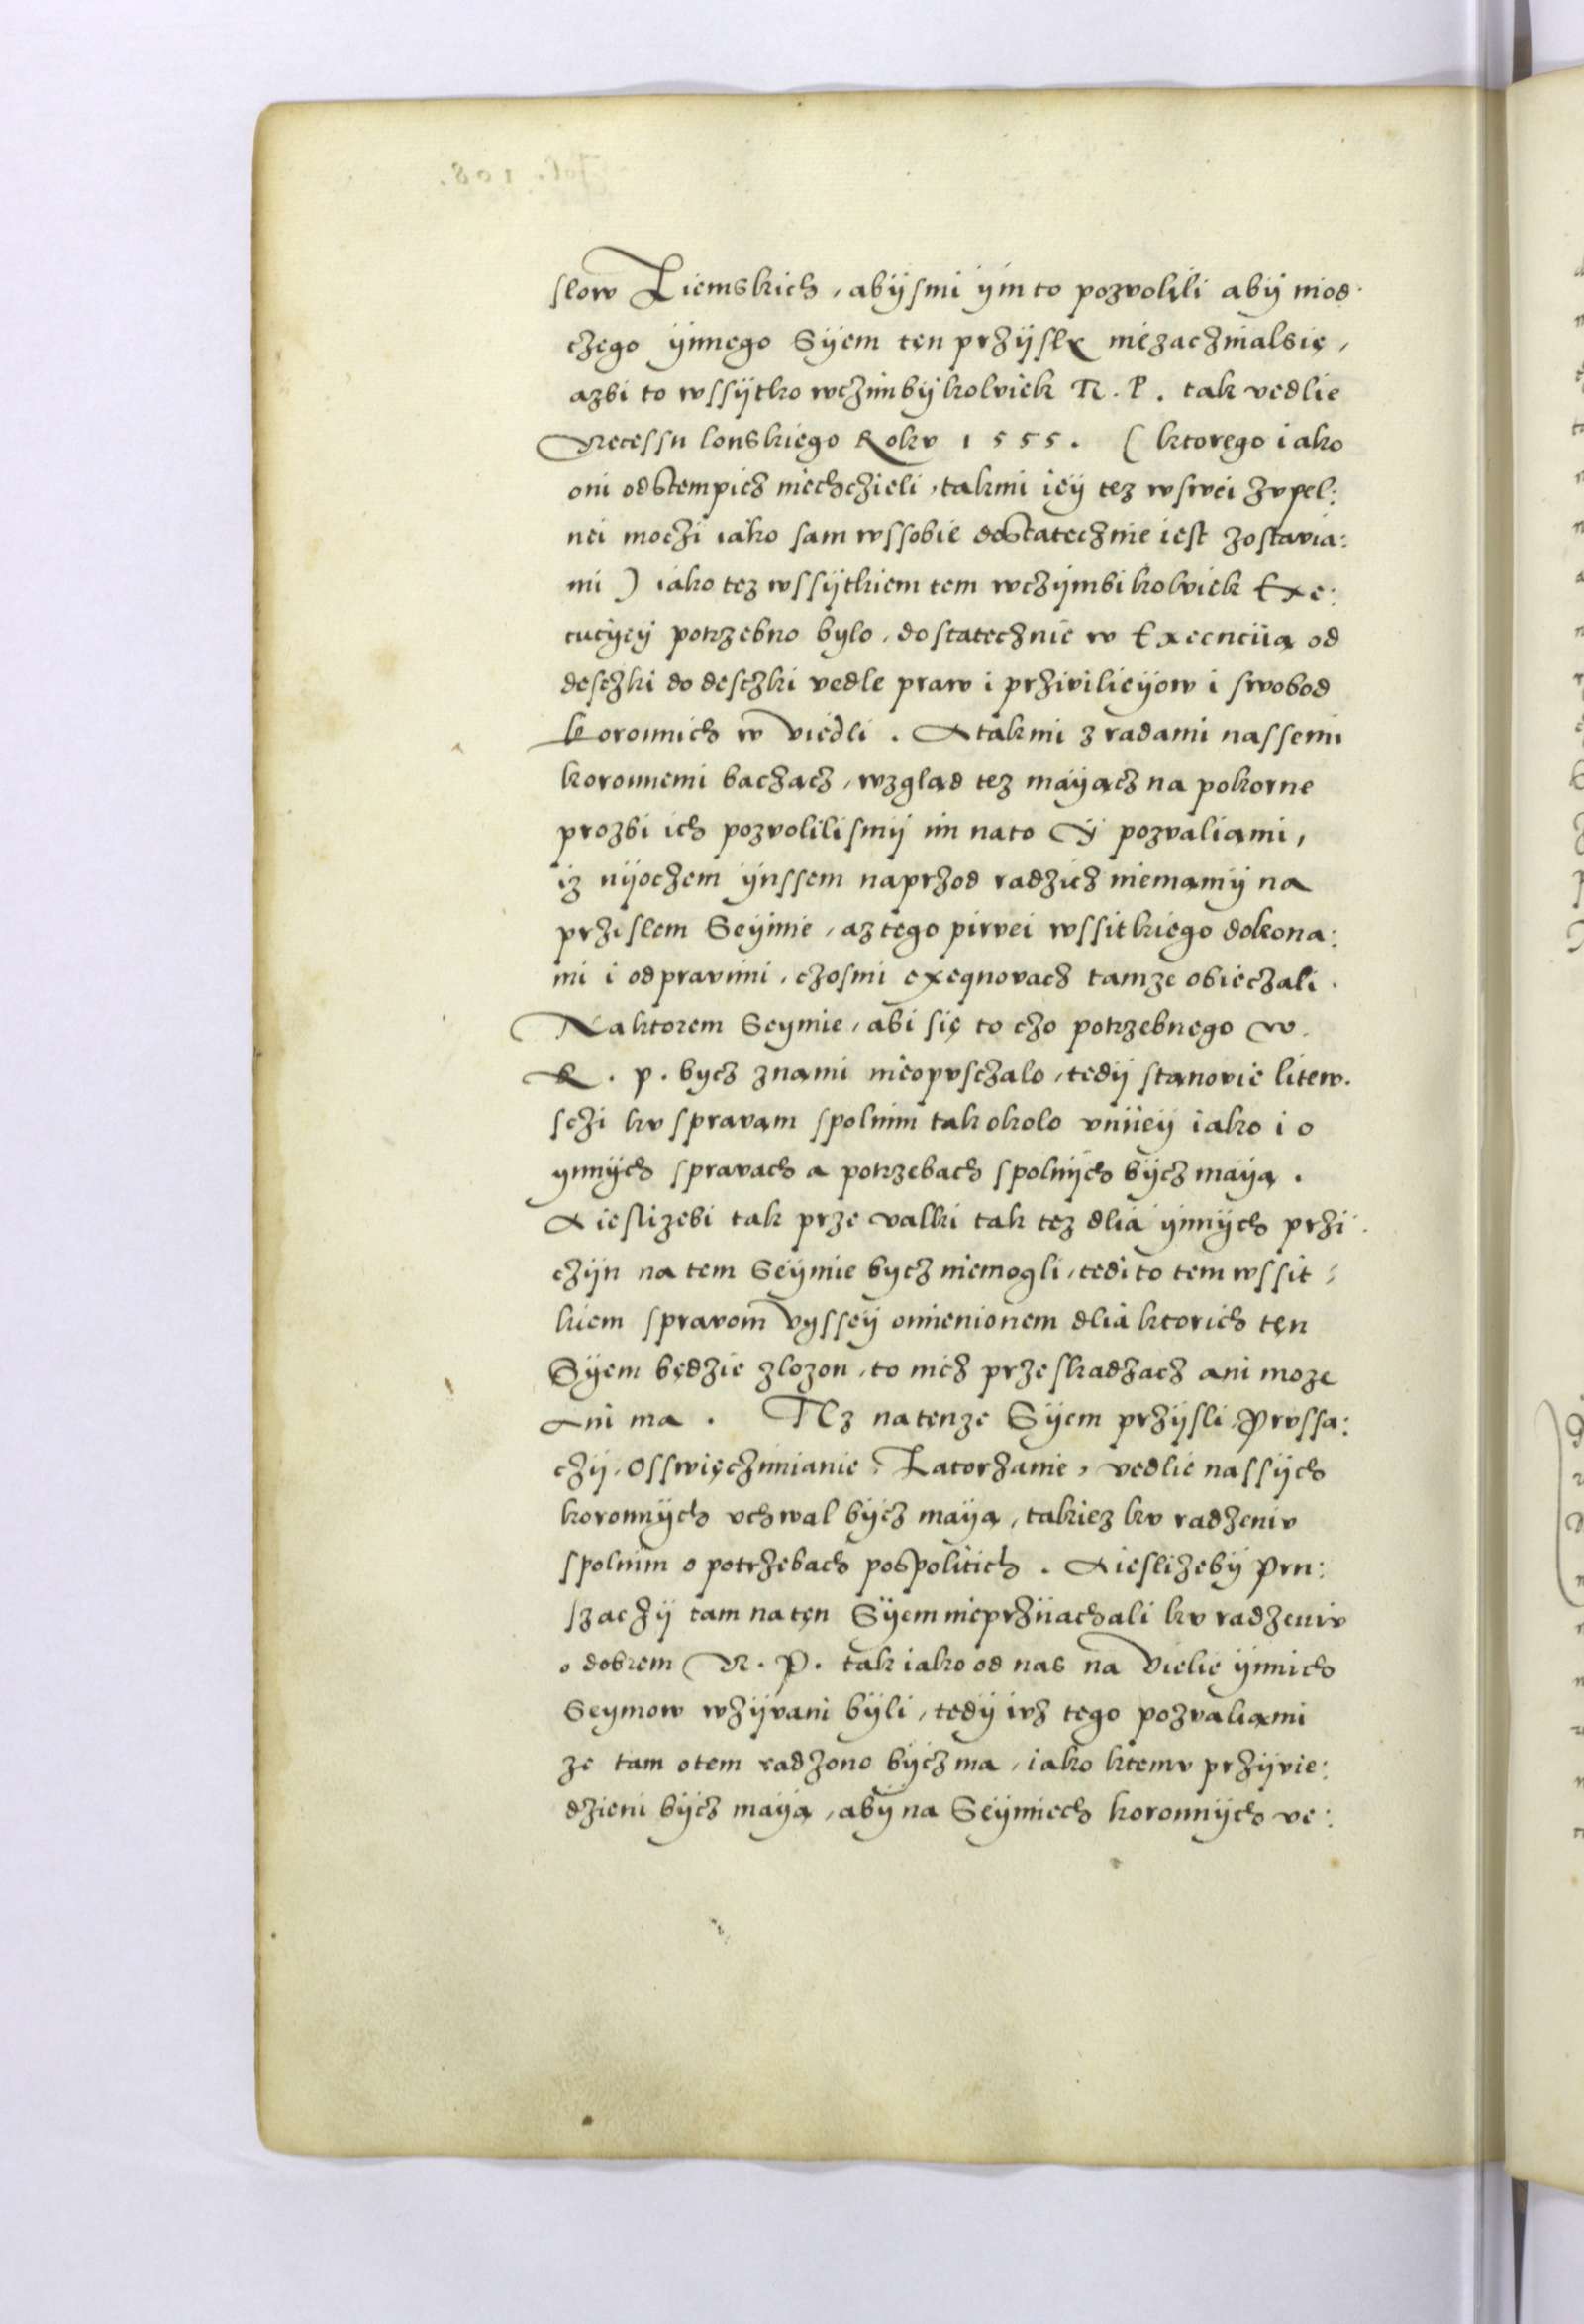 slow Ziemskich, abÿsmi ÿim to pozvolili abÿ niod
czego ÿnnego Sÿem ten przÿslÿ niezaczinalsię,
azbi to wssÿtko wczimbÿkolviek R. P. tak vedlie
Recessu lonskiego Rokv 1555. (ktorego iako
oni odstempicz niechczieli, takmi ieÿ tez wswei zvpel:
nei moczi iako sam wssobie dostatecznie iest zostavia:
mi) iako tez wssÿtkiem tem wczÿmbikolviek Exe:
cucÿeÿ potrzebno bylo, dostatecznie w Execucÿą od
desczki do desczki vedle praw i prziviliejow i swobod
koronnich w viedli. A takmi z radami nassemi
koronnemi baczącz, wzglad tez mayącz na pokorne
prozbi ich pozvolilismÿ im nato ÿ pozvaliami,
iz niioczem ÿnssem naprzod radzicz niemamÿ na
przislem Seÿmie, az tego pirvei wssitkiego dokona:
mi i odpravimi, czosmi exeqnovacz tamze obieczali.
Naktorem Seymie, abi się to czo potrzebnego w
R. p. bycz znami nieopvsczalo, tedÿ stanovie litew.
sczi kv spravam spolnim tak okolo vniieÿ iako i o
ynnÿch spravach a potrzebach spolnÿch bÿcz maÿą.
A ieslizebi tak prze valki tak tez dlia ÿnnÿch przi
czÿn na tem Seÿmie bycz niemogli, tedi to tem wssit
kiem spravom vysseÿ omienionem dlia ktorich ten
Sÿem będzie zlozon, to nicz przeskadzacz ani moze
ani ma. Az natenze Sÿem przÿsli, Prvssa:
czÿ, Osswięczimianie, Zatorzanie, vedlie nassÿch
koronnÿch vchwal bÿcz maÿą, takiez kv radzeniv
spolnim o potrzebach pospolitich. A ieslizebÿ Pru:
szaczÿ tam na ten Sÿem nieprziiachali kv radzeniv
o dobrem R. P. tak iako od nas na vielie ÿnnich
Seymow wzÿvani bÿli, tedÿ ivz tego pozvaliami
ze tam otem radzono bÿcz ma, iako ktemv przÿvie:
dzieni bÿcz maÿą, abÿ na Seÿmiech koronnÿch ve: